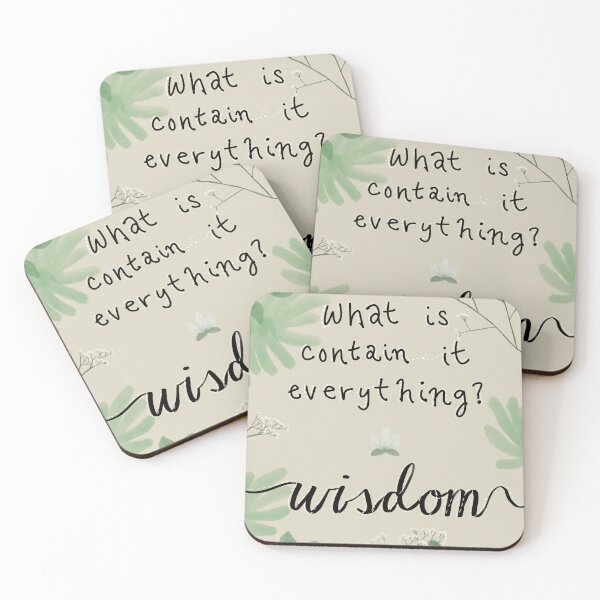 What is
contain it
everything?
What is
contain it
everything?
What is
contain it
everything?
wisd
What is
contain it
everything?
wisdom